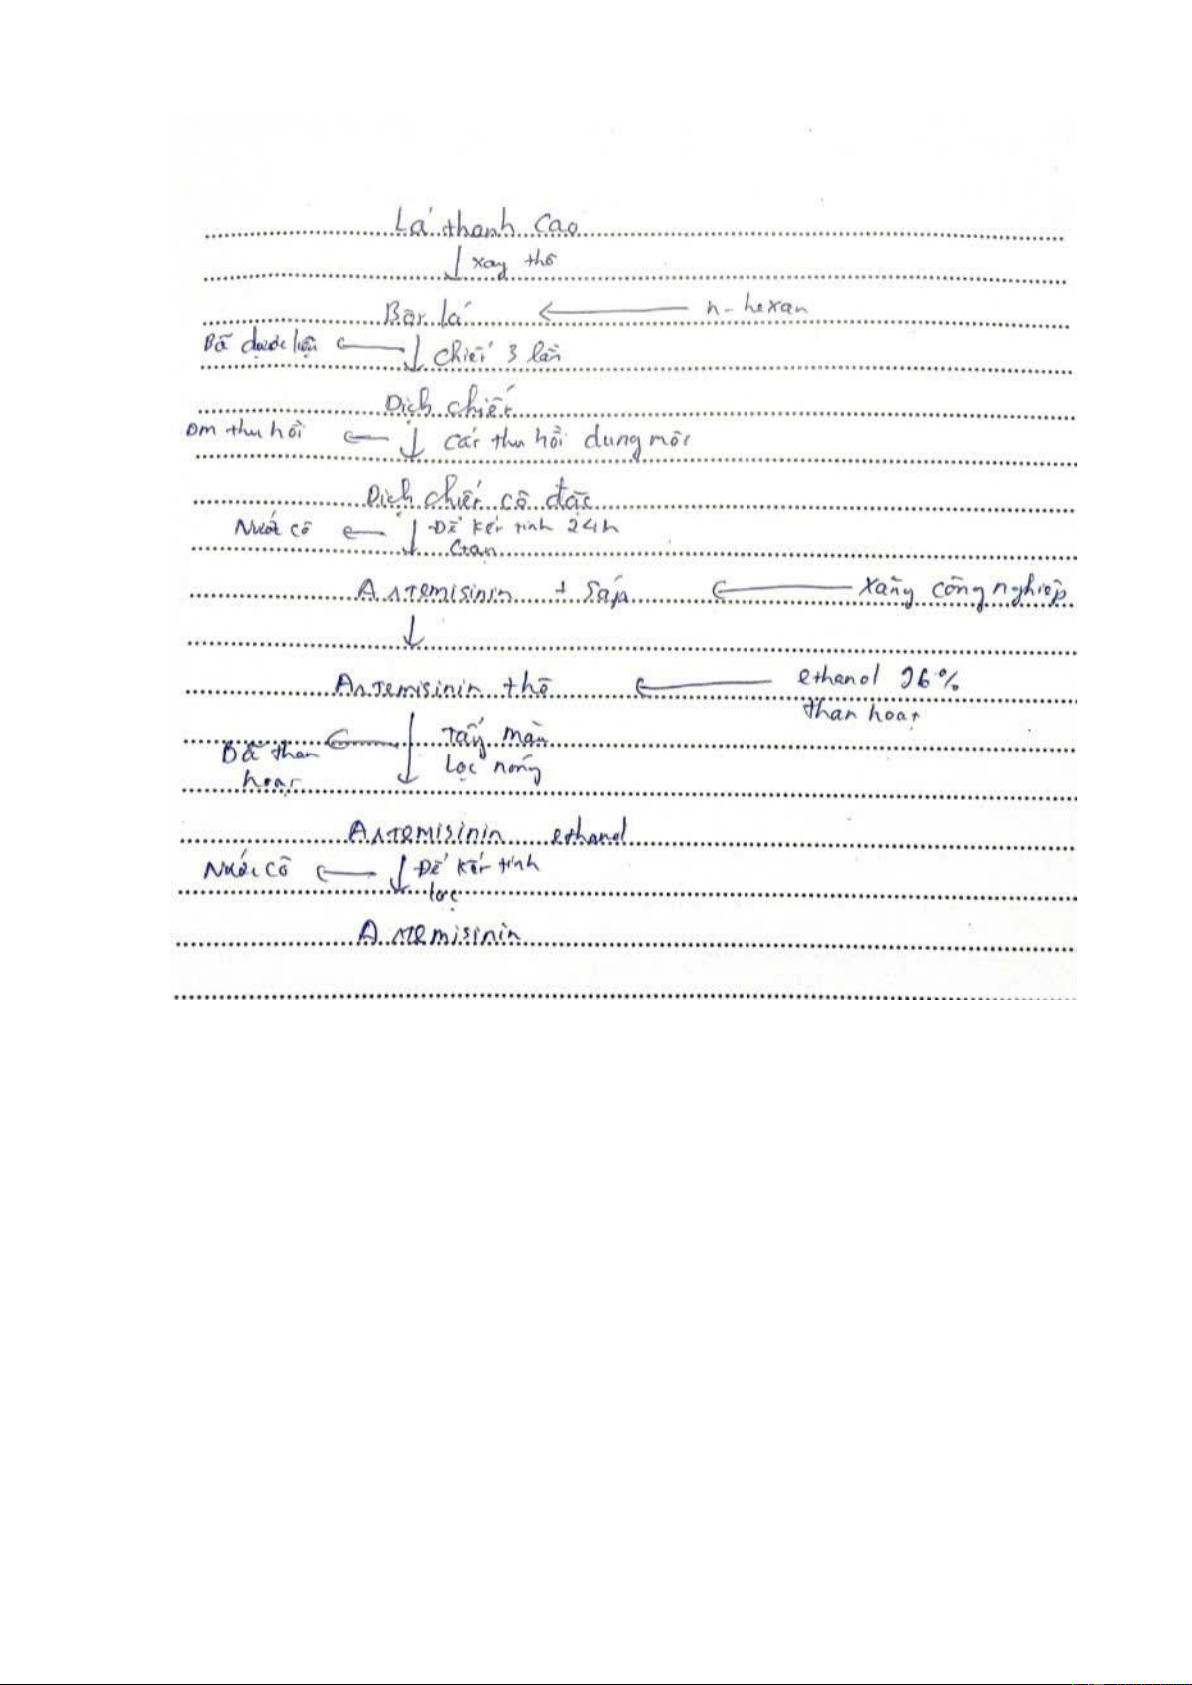 Lá thanh cao
xay thô
Bột lá n-hexan
Bã dược liệu chiết 3 lần
Dịch chiết
Dm thu hồi cất thu hồi dung môi
Dịch chiết cô đặc
Nước cô Để kết tinh 24h
Gạn
Artemisinin + Sáp Xăng công nghiệp
Artemisinin thô ethanol 96%
than hoạt
Bã than Tẩy màu
hoạt Lọc nóng
Artemisinin ethanol
Nước cô Để kết tinh
lọc
Artemisinin